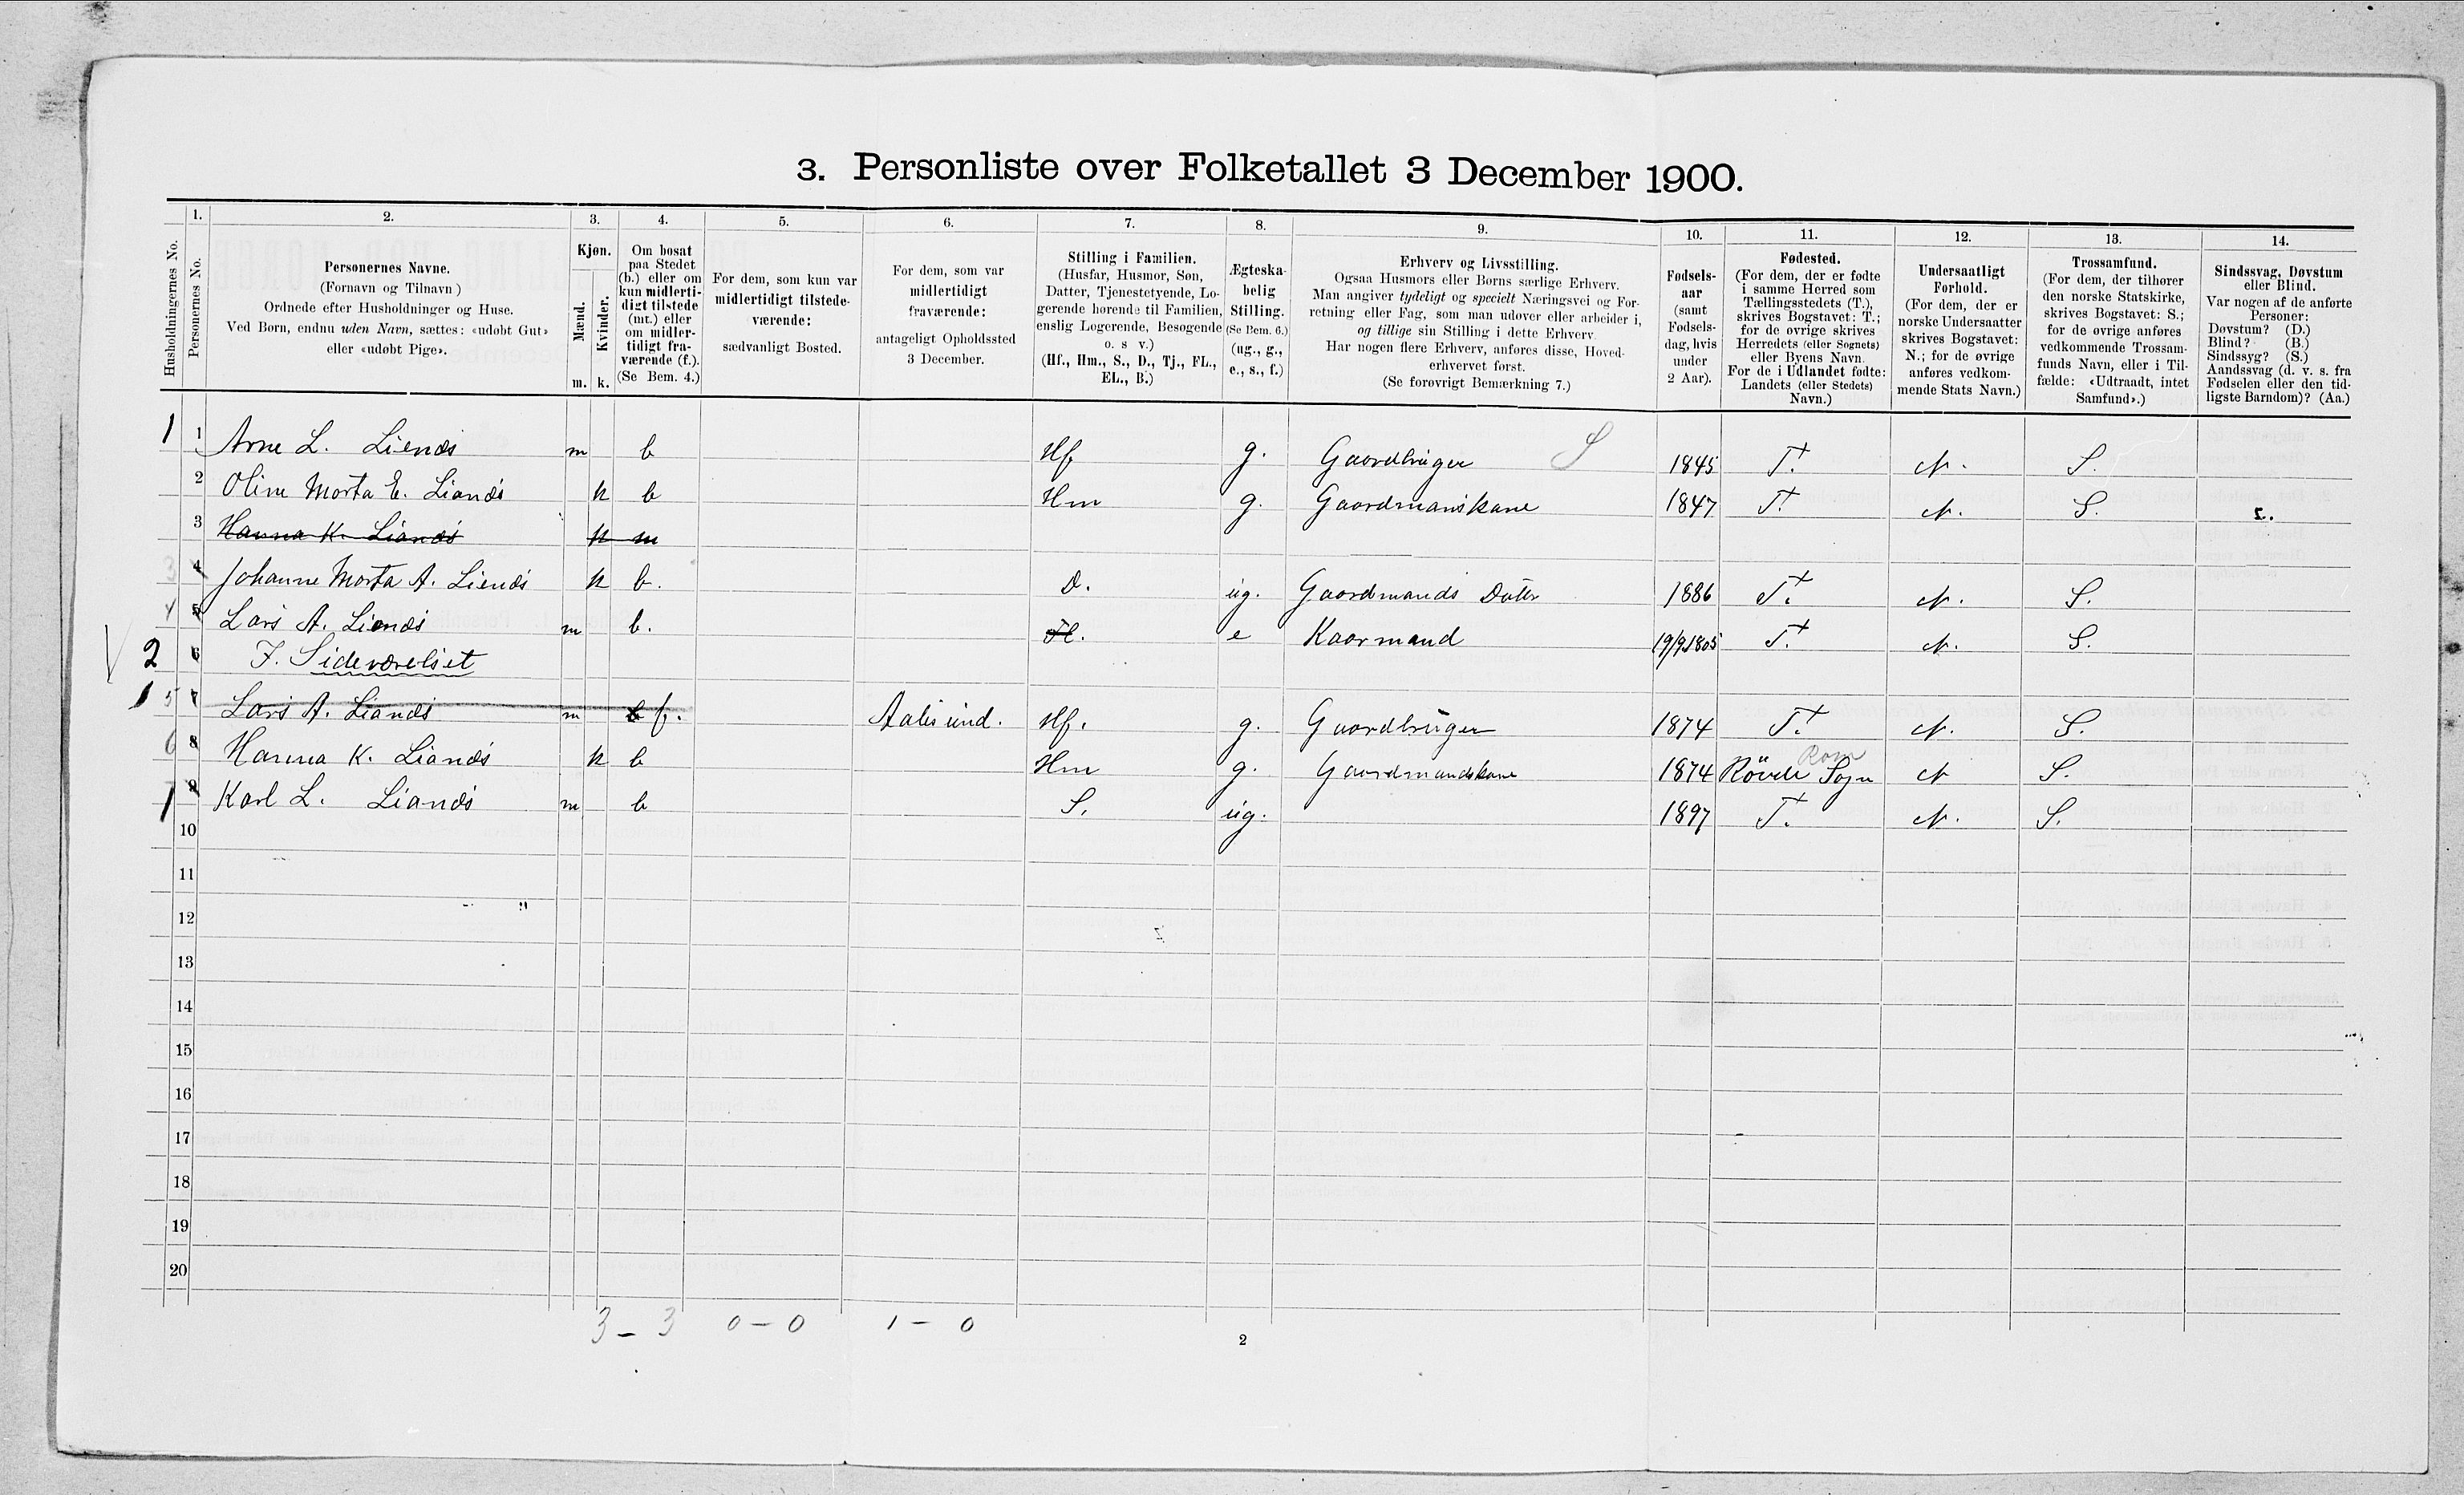 3. Personliste over Folketallet 3 December 1900.
1. 2. 3. 4. 5. 6. 7. 8. 9. 10. 11. 12. 13. 14.
Husholdningernes No.
Personernes No.
Personernes Navne.
(Fornavn og Tilnavn)
Ordnede efter Husholdninger og Huse.
Ved Børn, endnu uden Navn, sættes: «udøbt Gut»
eller «udøbt Pige».
Kjøn.
Mænd.
Kvinder.
m. k.
Om bosat
paa Stedet
(b.) eller om
kun midlerti-
digt tilstede
(mt.) eller
om midler-
tidigt fra-
værende (f.).
(Se Bem. 4.)
For dem, som kun var
midlertidigt tilstede-
værende:
sædvanligt Bosted.
For dem, som var
midlertidigt
fraværende:
antageligt Opholdssted
3 December.
Stilling i Familien.
(Husfar, Husmor, Søn,
Datter, Tjenestetyende, Lo-
gerende hørende til Familien,
enslig Logerende, Besøgende
o. s v.)
(Hf., Hm., S., D., Tj., FL.,
EL., B.)
Ægteska-
belig
Stilling.
(Se Bem. 6.)
(ug., g.,
e., s., f.)
Erhverv og Livsstilling.
Ogsaa Husmors eller Børns særlige Erhverv.
Man angiver tydeligt og specielt Næringsvei og For-
retning eller Fag, som man udøver eller arbeider i,
og tillige sin Stilling i dette Erhverv.
Har nogen flere Erhverv, anføres disse, Hoved-
erhvervet først.
(Se forøvrigt Bemærkning 7.)
Fødsels-
aar
(samt
Fødsels-
dag, hvis
under
2 Aar).
Fødested.
(For dem, der er fødte
i samme Herred som
Tællingsstedets (T.),
skrives Bogstavet: T.;
for de øvrige skrives
Herredets (eller Sognets)
eller Byens Navn.
For de i Udlandet fødte:
Landets (eller Stedets)
Navn.)
Undersaatligt
Forhold.
(For dem, der er
norske Undersaatter
skrives Bogstavet:
N.; for de øvrige
anføres vedkom-
mende Stats Navn.)
Trossamfund.
(For dem, der tilhører
den norske Statskirke,
skrives Bogstavet: S.;
for de øvrige anføres
vedkommende Trossam-
funds Navn, eller i Til-
fælde: «Udtraadt, intet
Samfund».)
Sindssvag, Døvstum
eller Blind.
Var nogen af de anførte
Personer:
Døvstum? (D.)
Blind? (B.)
Sindssyg? (S.)
Aandssvag (d. v. s. fra
Fødselen eller den tid-
ligste Barndom)? (Aa.)
1 1 Arne L. Lienæs m b Hf g. Gaardbruger S 1845 T. N. S.
2 Oline Marta E. Lianæs k b Hm g. Gaardmanskone 1847 T. N. S.
3 Hanna K. Lianæs k m
3 4 Johanne Marta A. Lienæs k b. D. ug. Gaardmands Datter 1886 T. N. S.
4 5 Lars A. Lianæs m b. Fl. e Kaarmand 19/9 1805 T. N. S.
2 6 I. Sideværelset
1 5 7 Lars A. Lianæs m b f. Aalesund. Hf. g. Gaardbruger 1874 T. N. S.
6 8 Hanna K. Lianæs k b Hm g. Gaardmandskone 1874 Røvde Sogn N S.
9 Karl L. Lianæs m b S. ug. 1897 T. N. S.
10
11
12
13
14
15
16
17
18
19
20
3 - 3 0 - 0 1 - 0
2